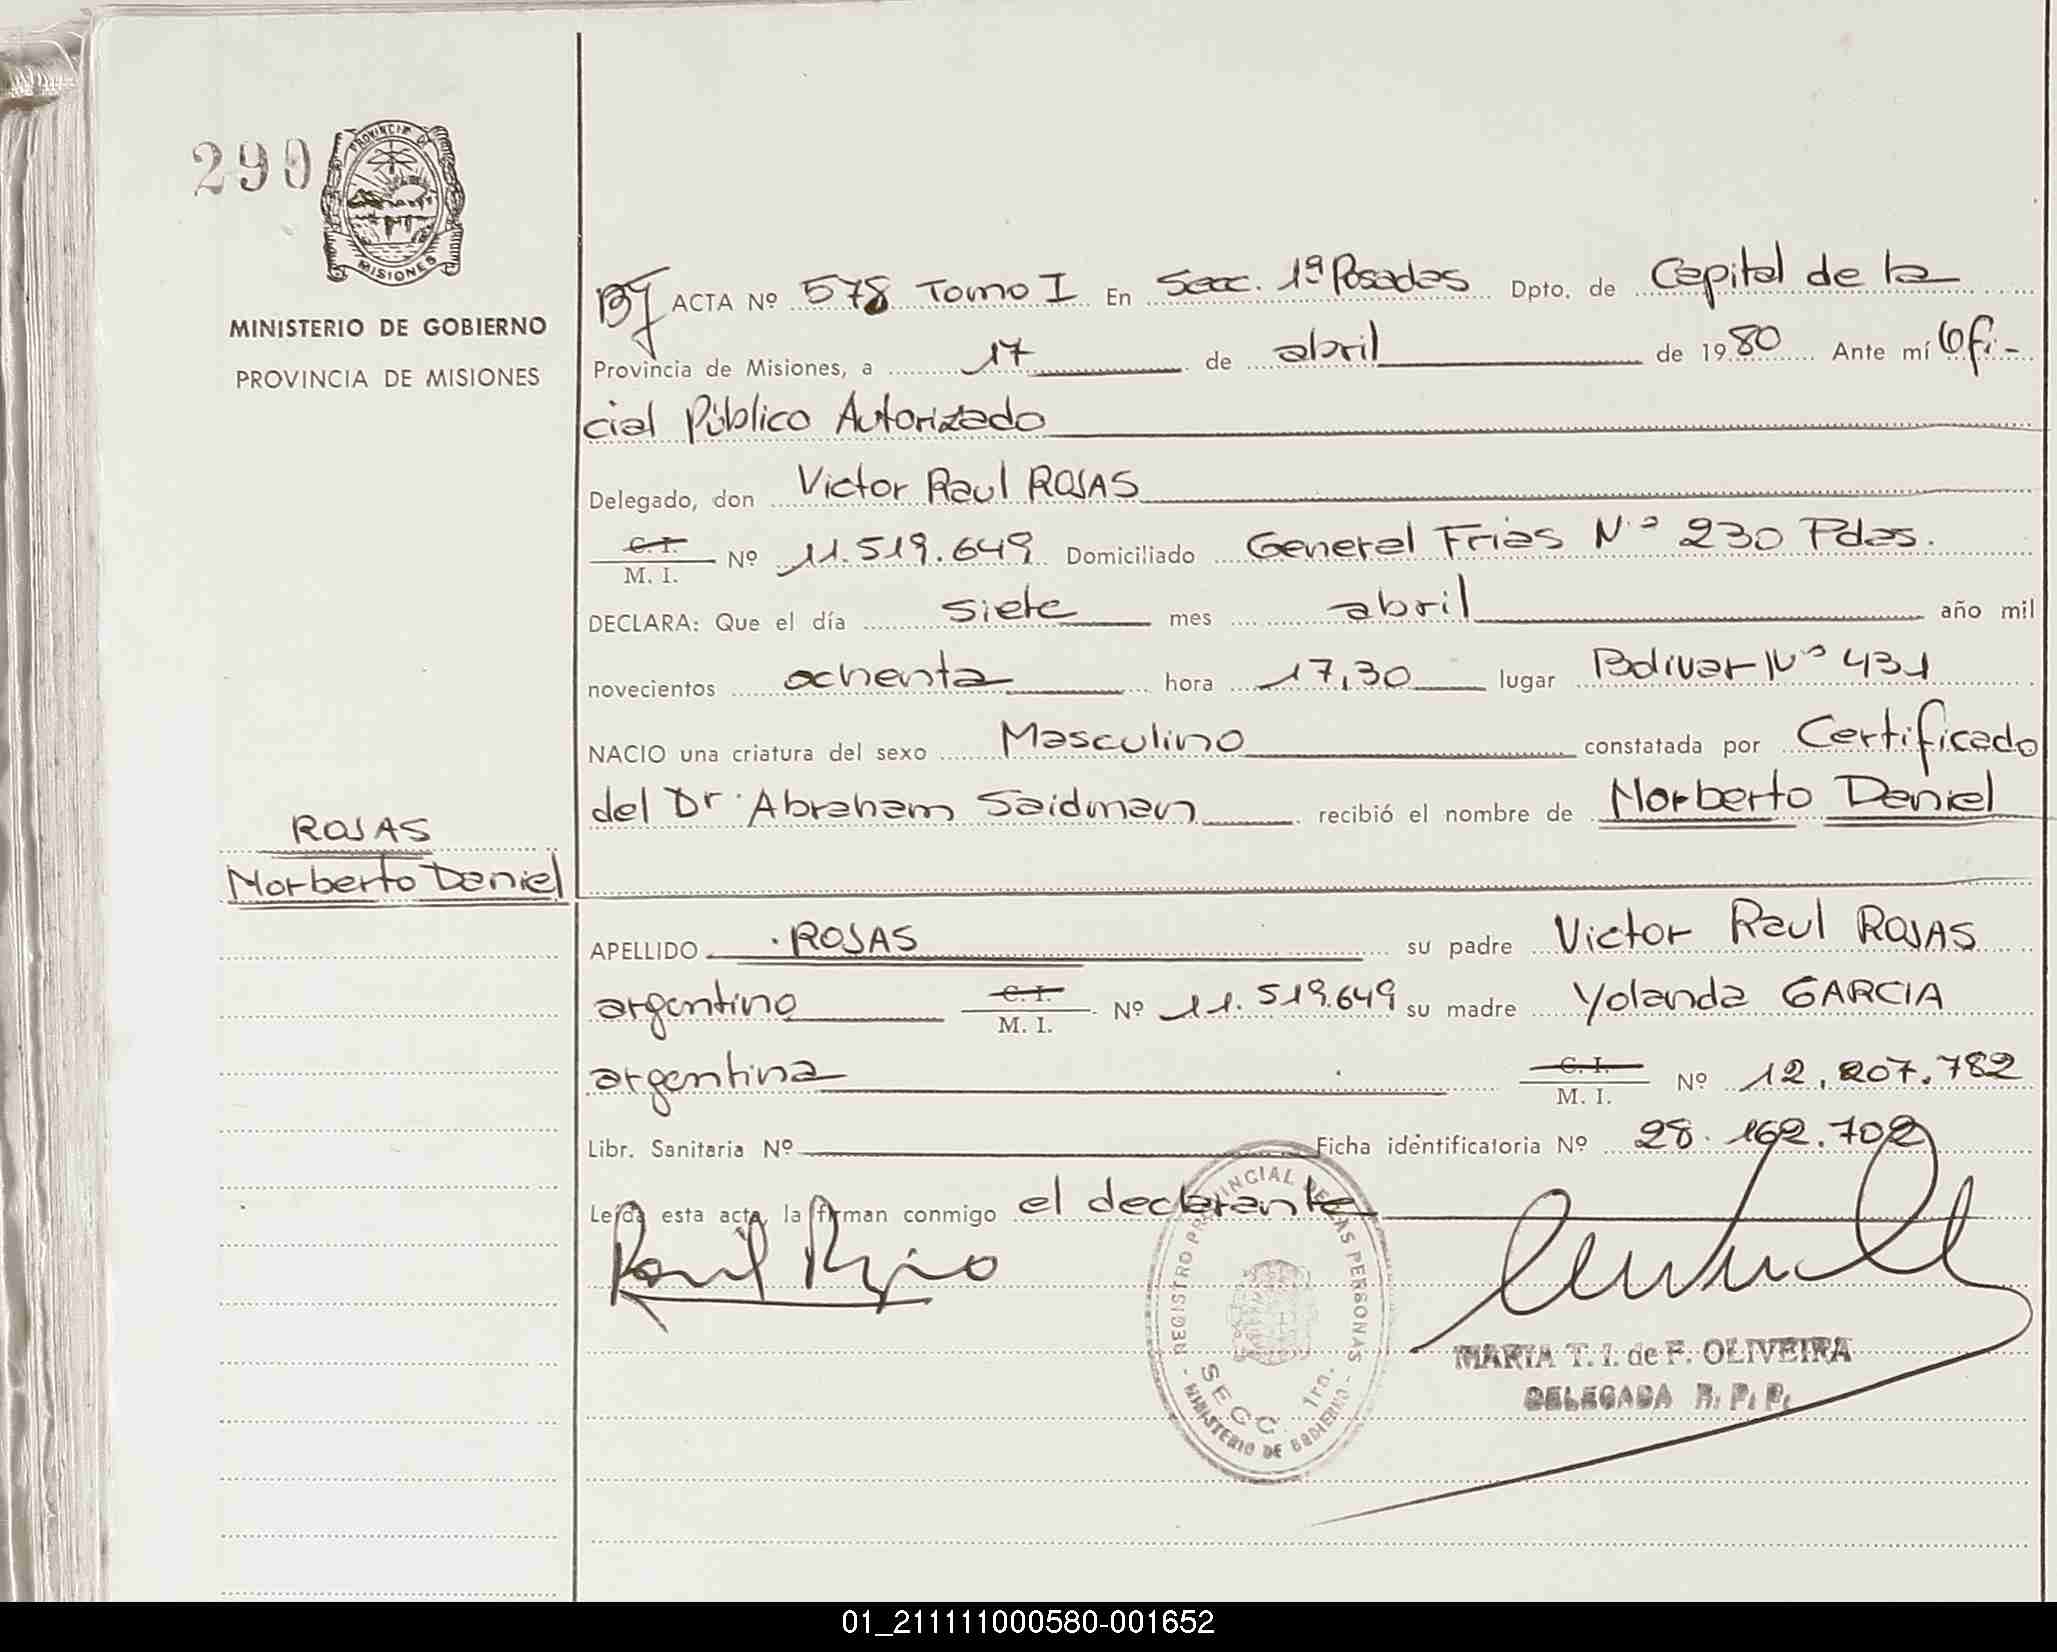 290
PROVINCIA DE
MISIONES
MINISTERIO DE GOBIERNO
PROVINCIA DE MISIONES
ROJAS
Norberto Daniel
ACTA Nº 578 Tomo I En Secc. 1ª Posadas Dpto. de Capital de la
Provincia de Misiones, a 17 de abril de 1980 Ante mí Ofi-
cial Público Autorizado
Delegado, don Victor Raul ROJAS
C. I.
M. I. Nº 11.519.649 Domiciliado General Frias Nº 230 Pdas.
DECLARA: Que el día siete mes abril año mil
novecientos ochenta hora 17,30 lugar Bolivar Nº 431
NACIO una criatura del sexo Masculino constatada por Certificado
del Dr. Abraham Saidman recibió el nombre de Norberto Daniel
APELLIDO ROJAS su padre Victor Raul ROJAS
argentino C. I. M. I. Nº 11.519.649 su madre Yolanda GARCIA
argentina C. I. M. I. Nº 12.207.782
Libr. Sanitaria Nº Ficha identificatoria Nº 28.162.702
Leída esta acta, la firman conmigo el declarante
REGISTRO PROVINCIAL DE LAS PERSONAS
SECC. 1ra.
MINISTERIO DE GOBIERNO
MARIA T. I. de F. OLIVEIRA
DELEGADA R. P. P.
01_211111000580-001652